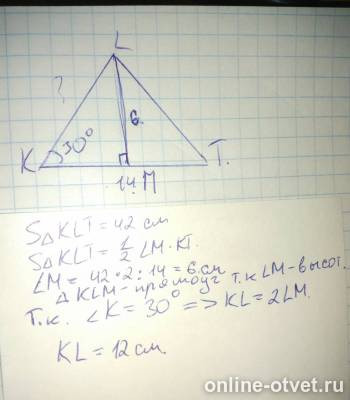 L
?
6.
K
30°
T.
14.
М
S△KLT = 42 см
S△KLT = 1/2 LM·KT.
LM = 42·2:14 = 6 см
△ KLM - прямоуг т.к LM - высот.
Т.к. ∠K = 30° => KL = 2LM.
KL = 12 см.
online-otvet.ru